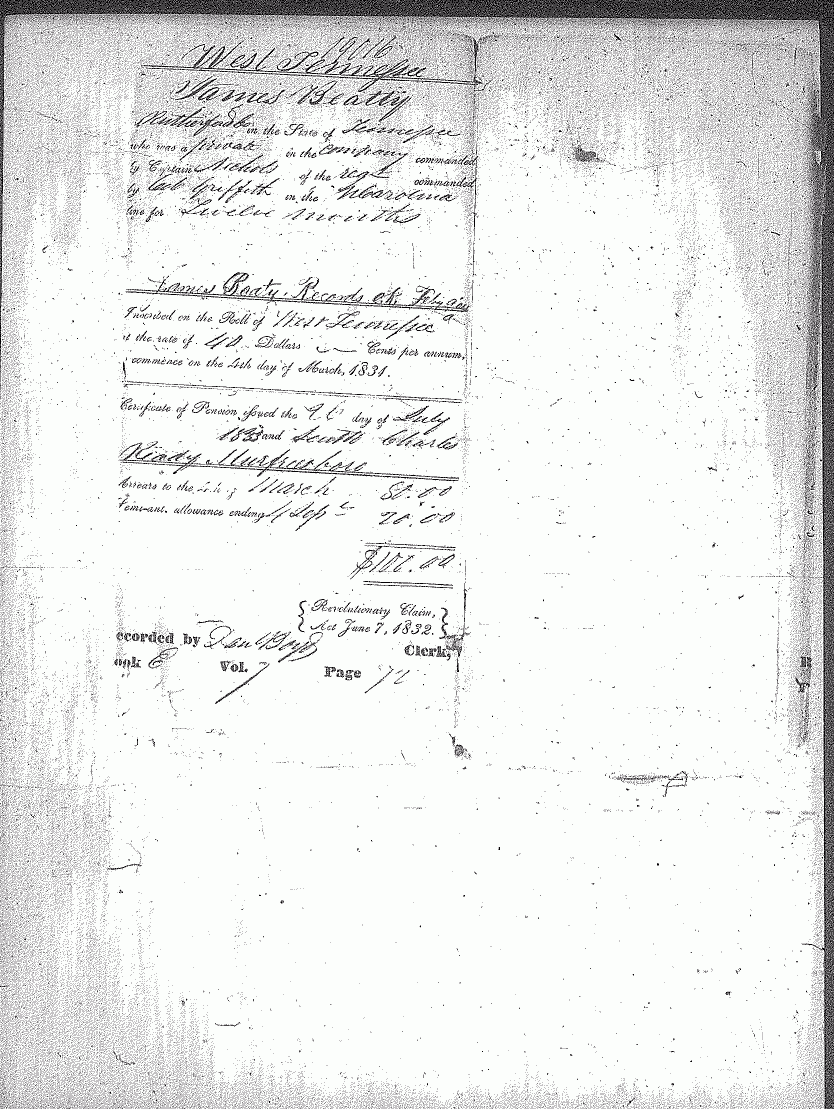 19016
West Tennessee
James Beatty
Rutherford Co in the State of Tennessee
who was a private in the company commanded
by Captain Nichols of the regt commanded
by Col. Griffith in the N Carolina
line for Twelve months
James Beaty. Records
Inscribed on the Roll of West Tennessee
at the rate of 40 Dollars Cents per annum,
commence on the 4th day of March, 1831.
Certificate of Pension issued the day of July
1833 and South Charles
Ready Murfreesboro
Arrears to the 4th of March 80.00
Semi-anl. allowance ending 4 Sept 20.00
$100.00
Revolutionary Claim,
Act June 7, 1832.
ecorded by Danl Boyd Clerk,
ook E Vol. 7 Page 72